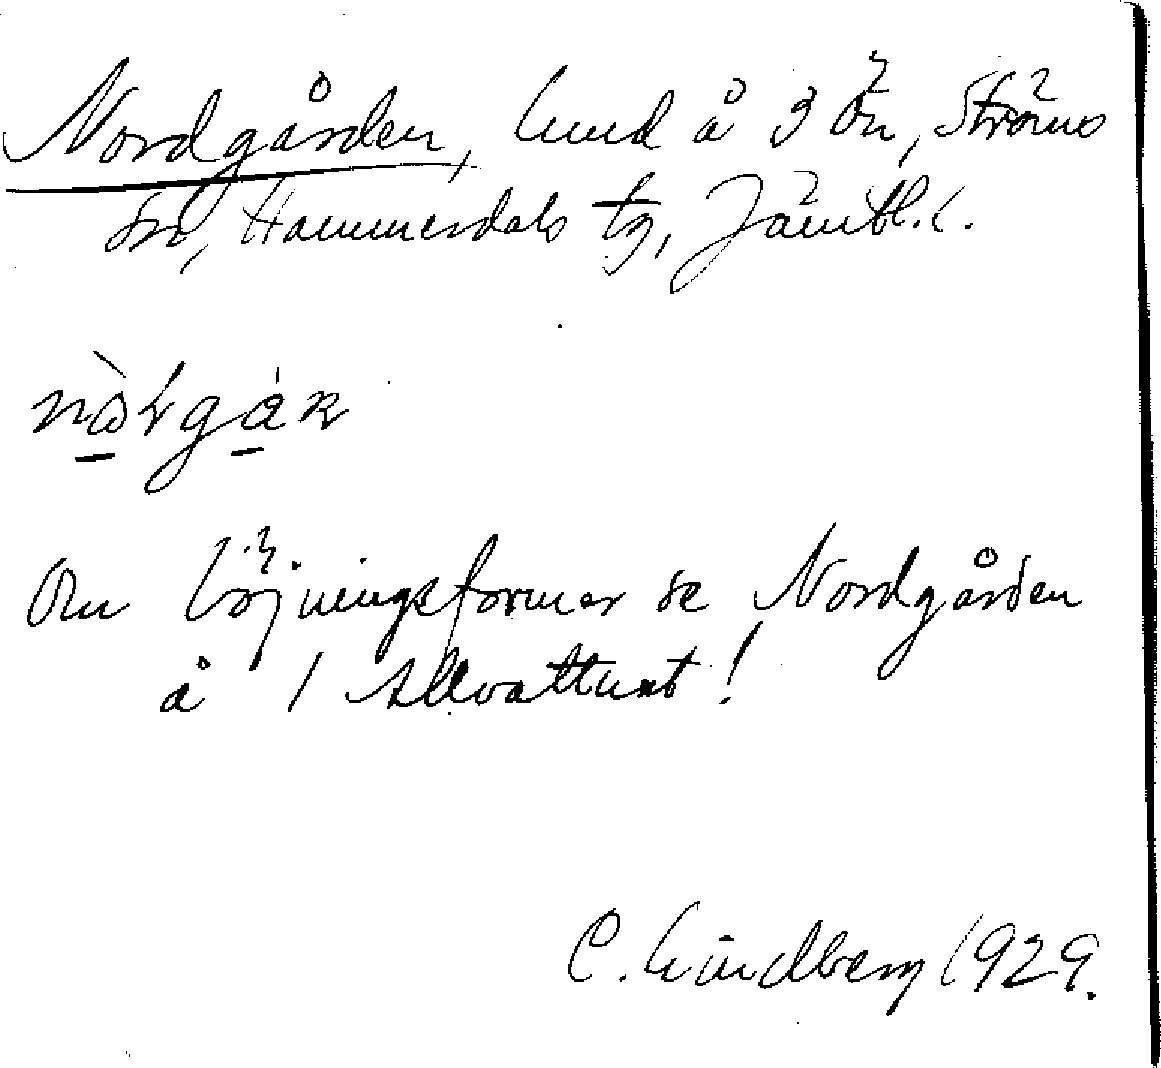 Nordgården, hmd å 3 Ön, Ströms
sn, Hammerdals tg, Jämtl.l.
Om böjningsformer se Nordgården
å 1 Allvattnet!
C. Lindberg 1929.